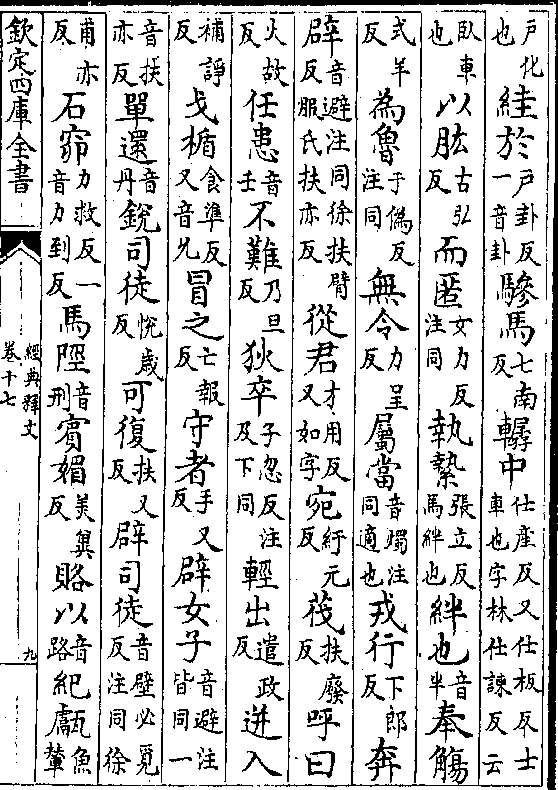 戶化也絓於戶卦反一音卦驂馬七南反轏中仕產反又仕板反士車也字林仕諫反云
臥車也以肱古弘反而匿女力反注同執縶張立反馬絆也絆也音半奉觴
式羊反為魯于偽反注同無令力呈反屬當音燭注同適也戎行下郎反奔
辟音避注同徐扶臂反服氏扶亦反從君才用反又如字宛紆元反茷扶廢反呼曰
火故反任患音壬不難乃旦反狄卒子忽反注及下同輕出遣政反迸入
補諍反戈楯食準反又音允冒之亡報反守者手又反辟女子音避注皆同一
音扶亦反單還音丹銳司徒悅歲反可復扶又反辟司徒音壁必覓反注同徐
甫亦反石窌力救反一音力到反馬陘音刑賓媚美冀反賂以音路紀甗魚輦
欽定四庫全書
經典釋文
卷十七
九